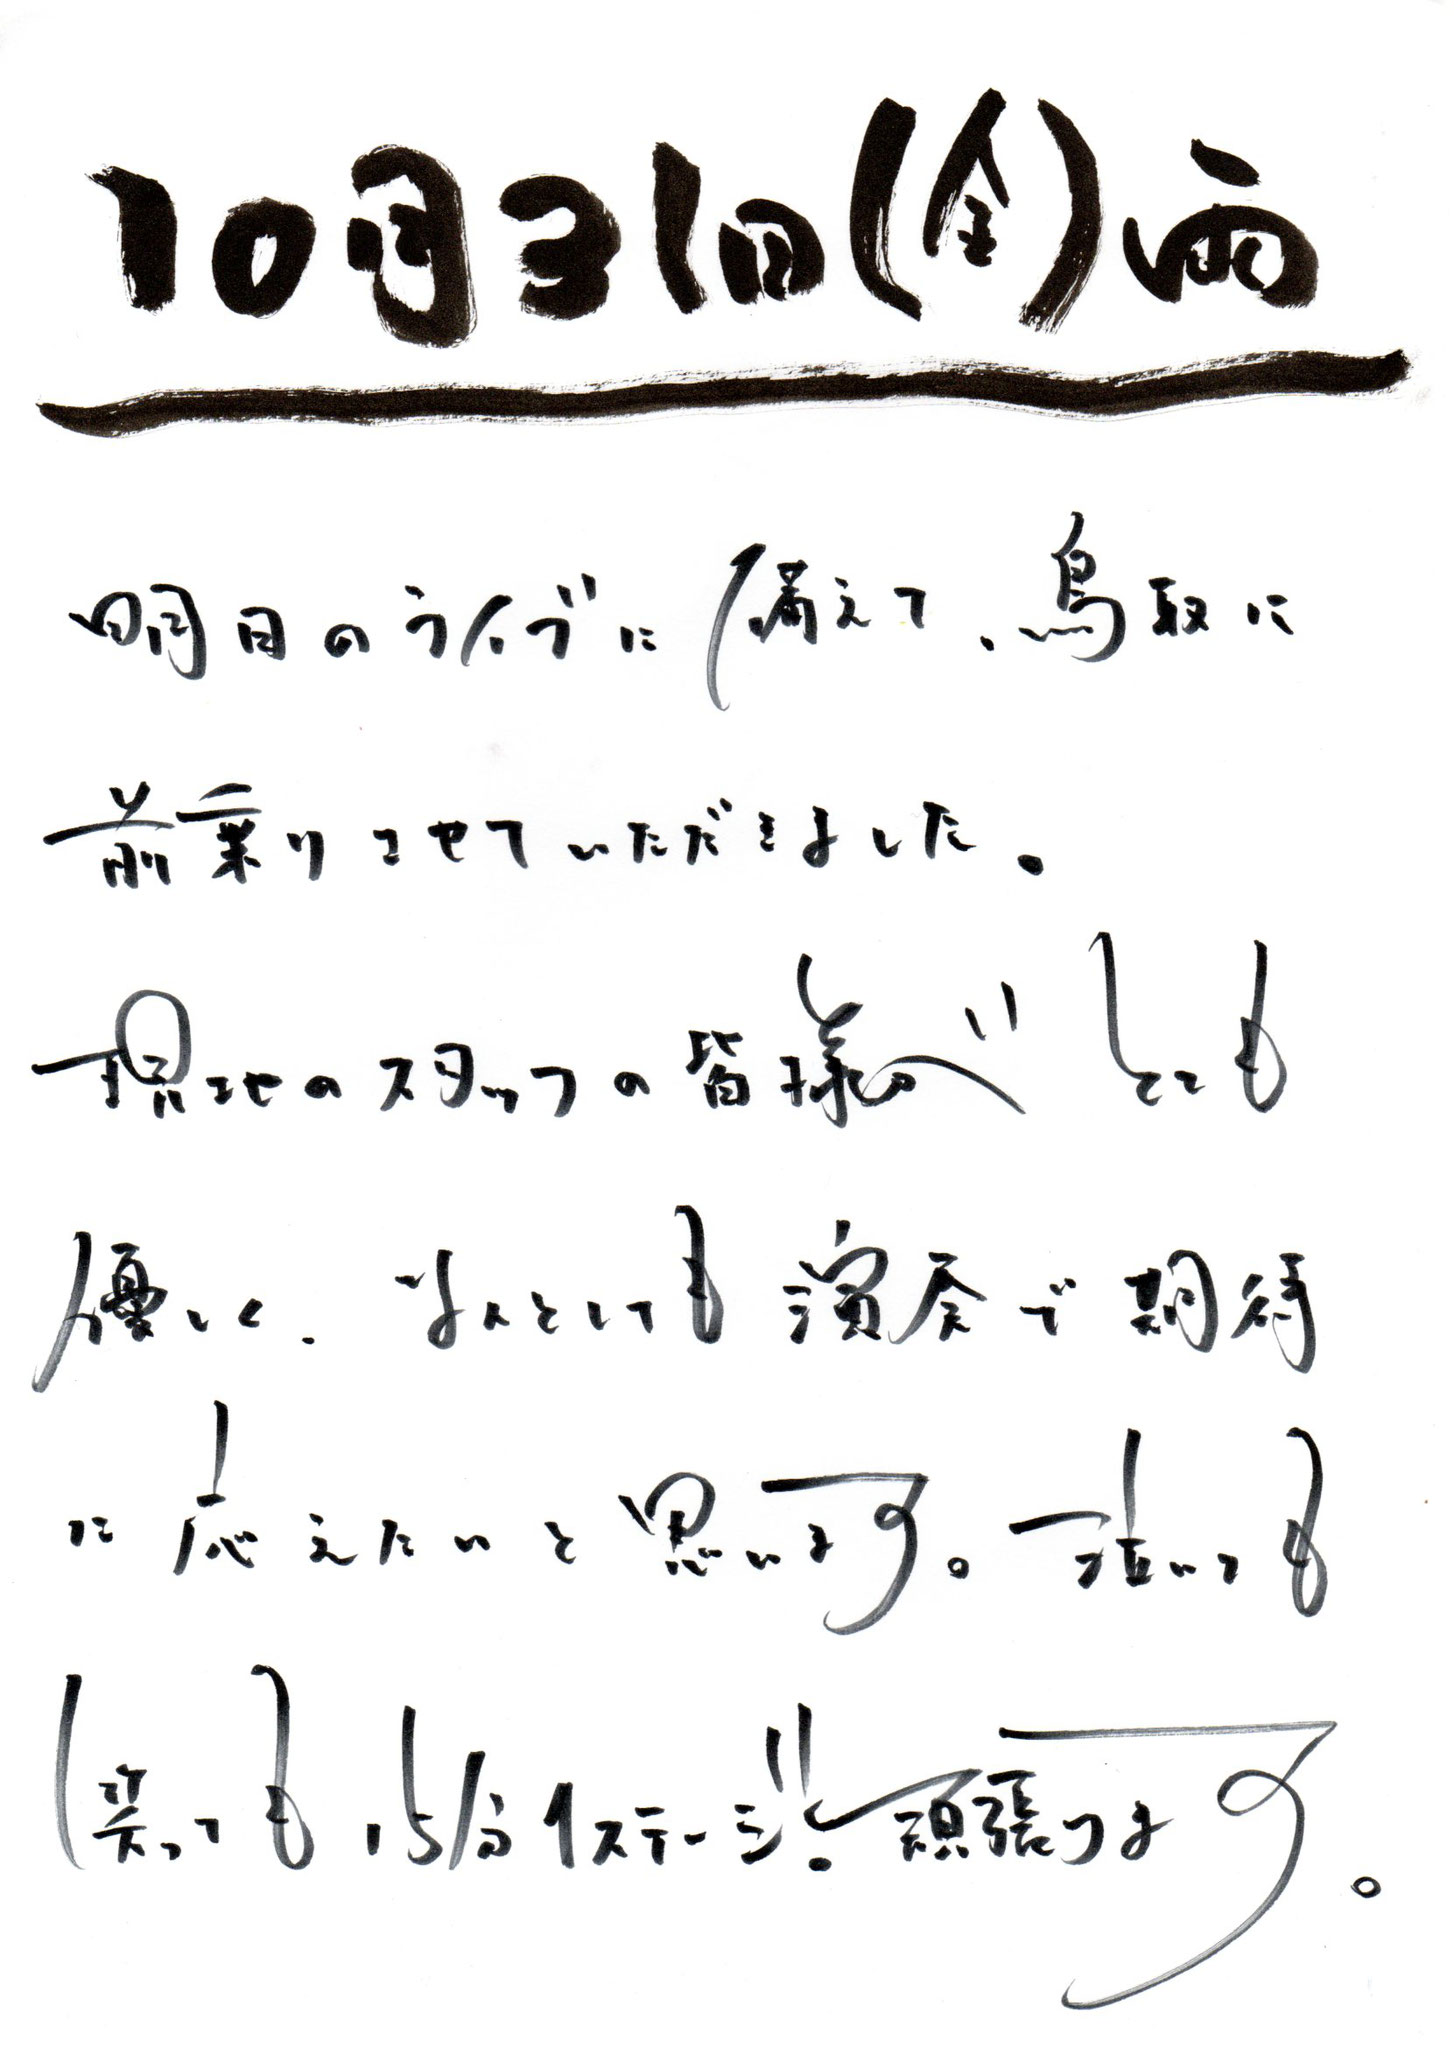 10月31日(金)雨
明日のライブに備えて、鳥取に
前乗りさせていただきました。
現地のスタッフの皆様がとても
優しく、なんとしても演奏で期待
に応えたいと思います。泣いても
笑っても、15分1ステージ!頑張ります。